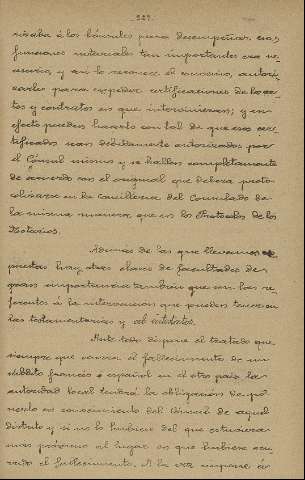 -227-
rizaba á los Cónsules para desempeñar esas
funciones notariales tan importantes era ne-
cesario, y así lo reconoce el convenio, autori-
zarles para expedir certificaciones de los ac-
tos y contratos en que intervinieran; y en
efecto pueden hacerlo con tal de que esos cer-
tificados sean debidamente autorizados por
el Cónsul mismo y se hallen completamente
de acuerdo con el original que deberá proto-
colizarse en la Cancillería del Consulado de
la misma manera que en los Protocolos de los
Notarios.
Además de las que llevamos ex-
puestas hay otras clases de facultades de
gran importancia también que son las re-
ferentes á la intervención que pueden tener en
las testamentarías y ab intestatos.
Ante todo dispone el tratado que
siempre que ocurra el fallecimiento de un
súbdito francés ó español en el otro país la
autoridad local tendrá la obligación de po-
nerlo en conocimiento del Cónsul de aquel
distrito y si no lo hubiese del que estuviera
mas próximo al lugar en que hubiere ocu-
rrido el fallecimiento. A la vez impone á